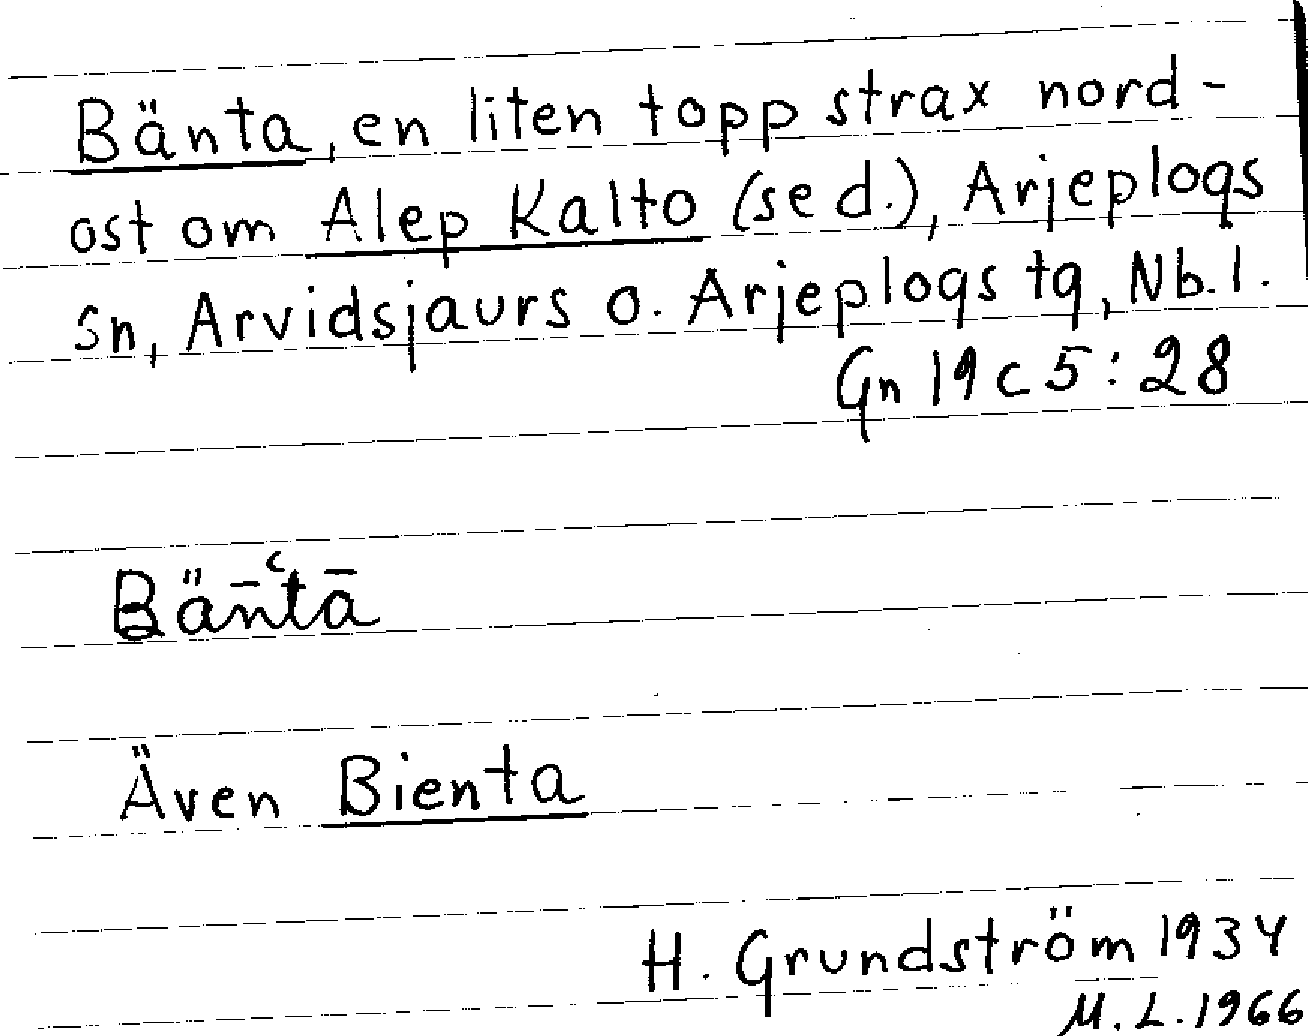 Bänta, en liten topp strax nord-
ost om Alep Kalto (se d.), Arjeplogs
sn, Arvidsjaurs o. Arjeplogs tg, Nb. l.
Gn 19 c 5:28
Bän̄ʿtā
Även Bienta
H. Grundström 1934
M. L. 1966